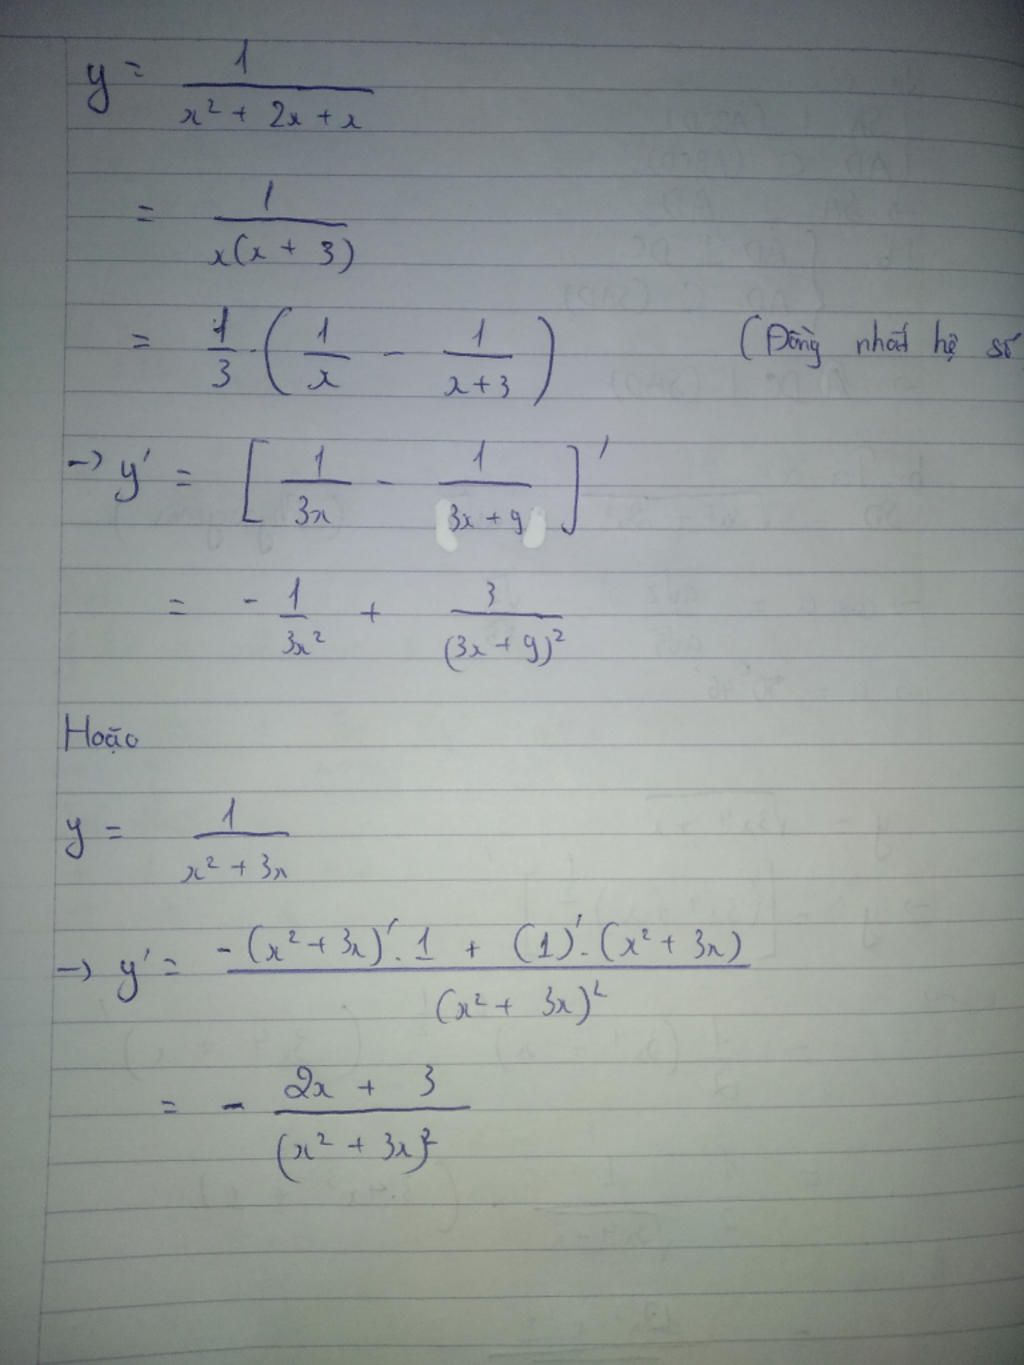 y = 1 / (x² + 2x + x)
= 1 / (x(x + 3))
= 1/3 . (1/x - 1/(x+3)) (Đồng nhất hệ số
-> y' = [1/(3x) - 1/(3x + 9)]'
= - 1/(3x²) + 3/(3x + 9)²
Hoặc
y = 1 / (x² + 3x)
-> y' = (-(x² + 3x)' . 1 + (1)' . (x² + 3x)) / (x² + 3x)²
= - (2x + 3) / (x² + 3x)²